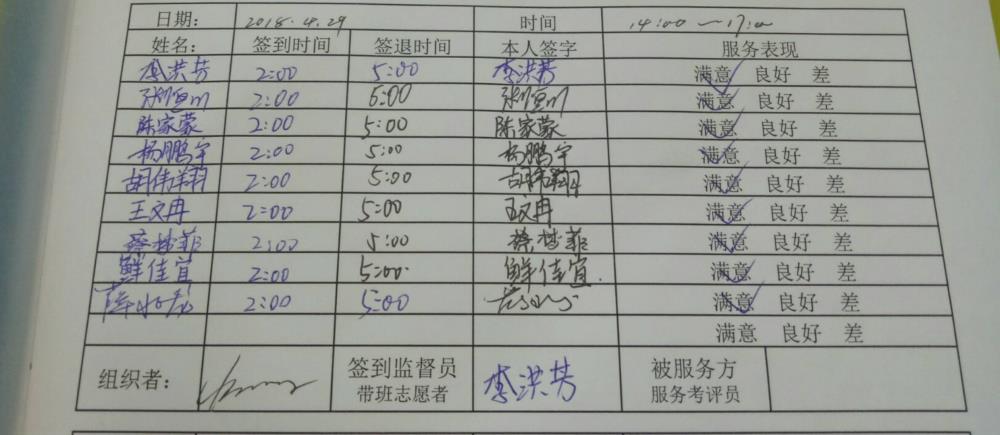 日期： 2018.4.29 时间 14:00 —17:00
姓名： 签到时间 签退时间 本人签字 服务表现
李洪芳 2:00 5:00 李洪芳 满意 良好 差
2:00 5:00 满意 良好 差
陈家蒙 2:00 5:00 陈家蒙 满意 良好 差
杨鹏宇 2:00 5:00 杨鹏宇 满意 良好 差
胡伟翔 2:00 5:00 胡伟翔 满意 良好 差
王文冉 2:00 5:00 王文冉 满意 良好 差
蔡梦菲 2:00 5:00 蔡梦菲 满意 良好 差
鲜佳宜 2:00 5:00 鲜佳宜. 满意 良好 差
2:00 5:00 满意 良好 差
满意 良好 差
组织者： 签到监督员 李洪芳 被服务方
带班志愿者 服务考评员